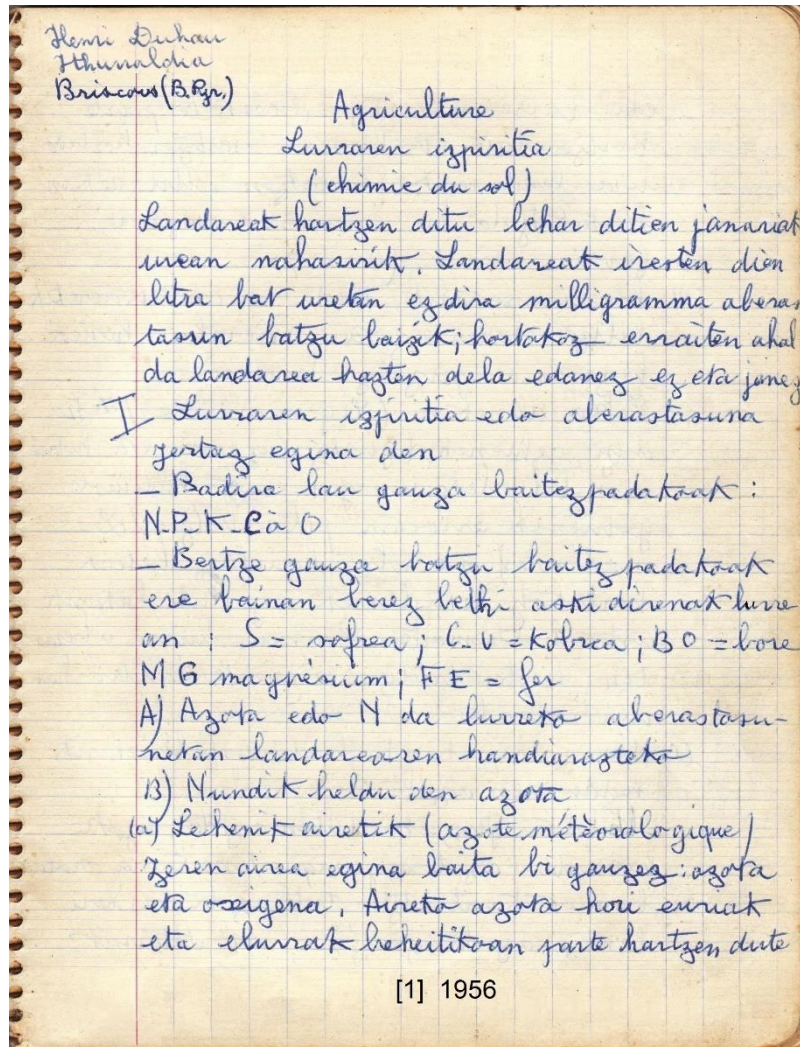 Henri Duhau
Ithurraldia
Briscous (B. Pyr.)
Agriculture
Lurraren izpiritia
(chimie du sol)
Landareak hartzen ditu behar ditien janariak
urean nahasirik. Landareak iresten dien
litra bat uretan ez dira milligramma aberas
tasun batzu baizik; hortakoz erraiten ahal
da landarea hazten dela edanez ez eta janez
I Lurraren izpiritia edo aberastasuna
zertaz egina den
– Badira lau gauza baitezpadakoak :
N-P-K-Ca O
– Bertze gauza batzu baitezpadakoak
ere bainan berez bethi aski direnak lurre
an : S = sofrea ; C.U = Kobrea ; BO = bore
M G magnésium ; FE = fer
A) Azota edo N da lurreko aberastasu-
netan landarearen handiarazteko
B) Nundik heldu den azota
(a) Lehenik airetik (azote météorologique)
Zeren airea egina baita bi gauzez : azota
eta oxigena. Aireko azota hori euriak
eta elurrak beheitikoan parte hartzen dute
[1] 1956